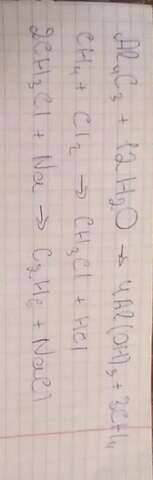 Al₄C₃ + 12H₂O → 4Al(OH)₃ + 3CH₄
CH₄ + Cl₂ → CH₃Cl + HCl
2CH₃Cl + Na → C₂H₆ + NaCl